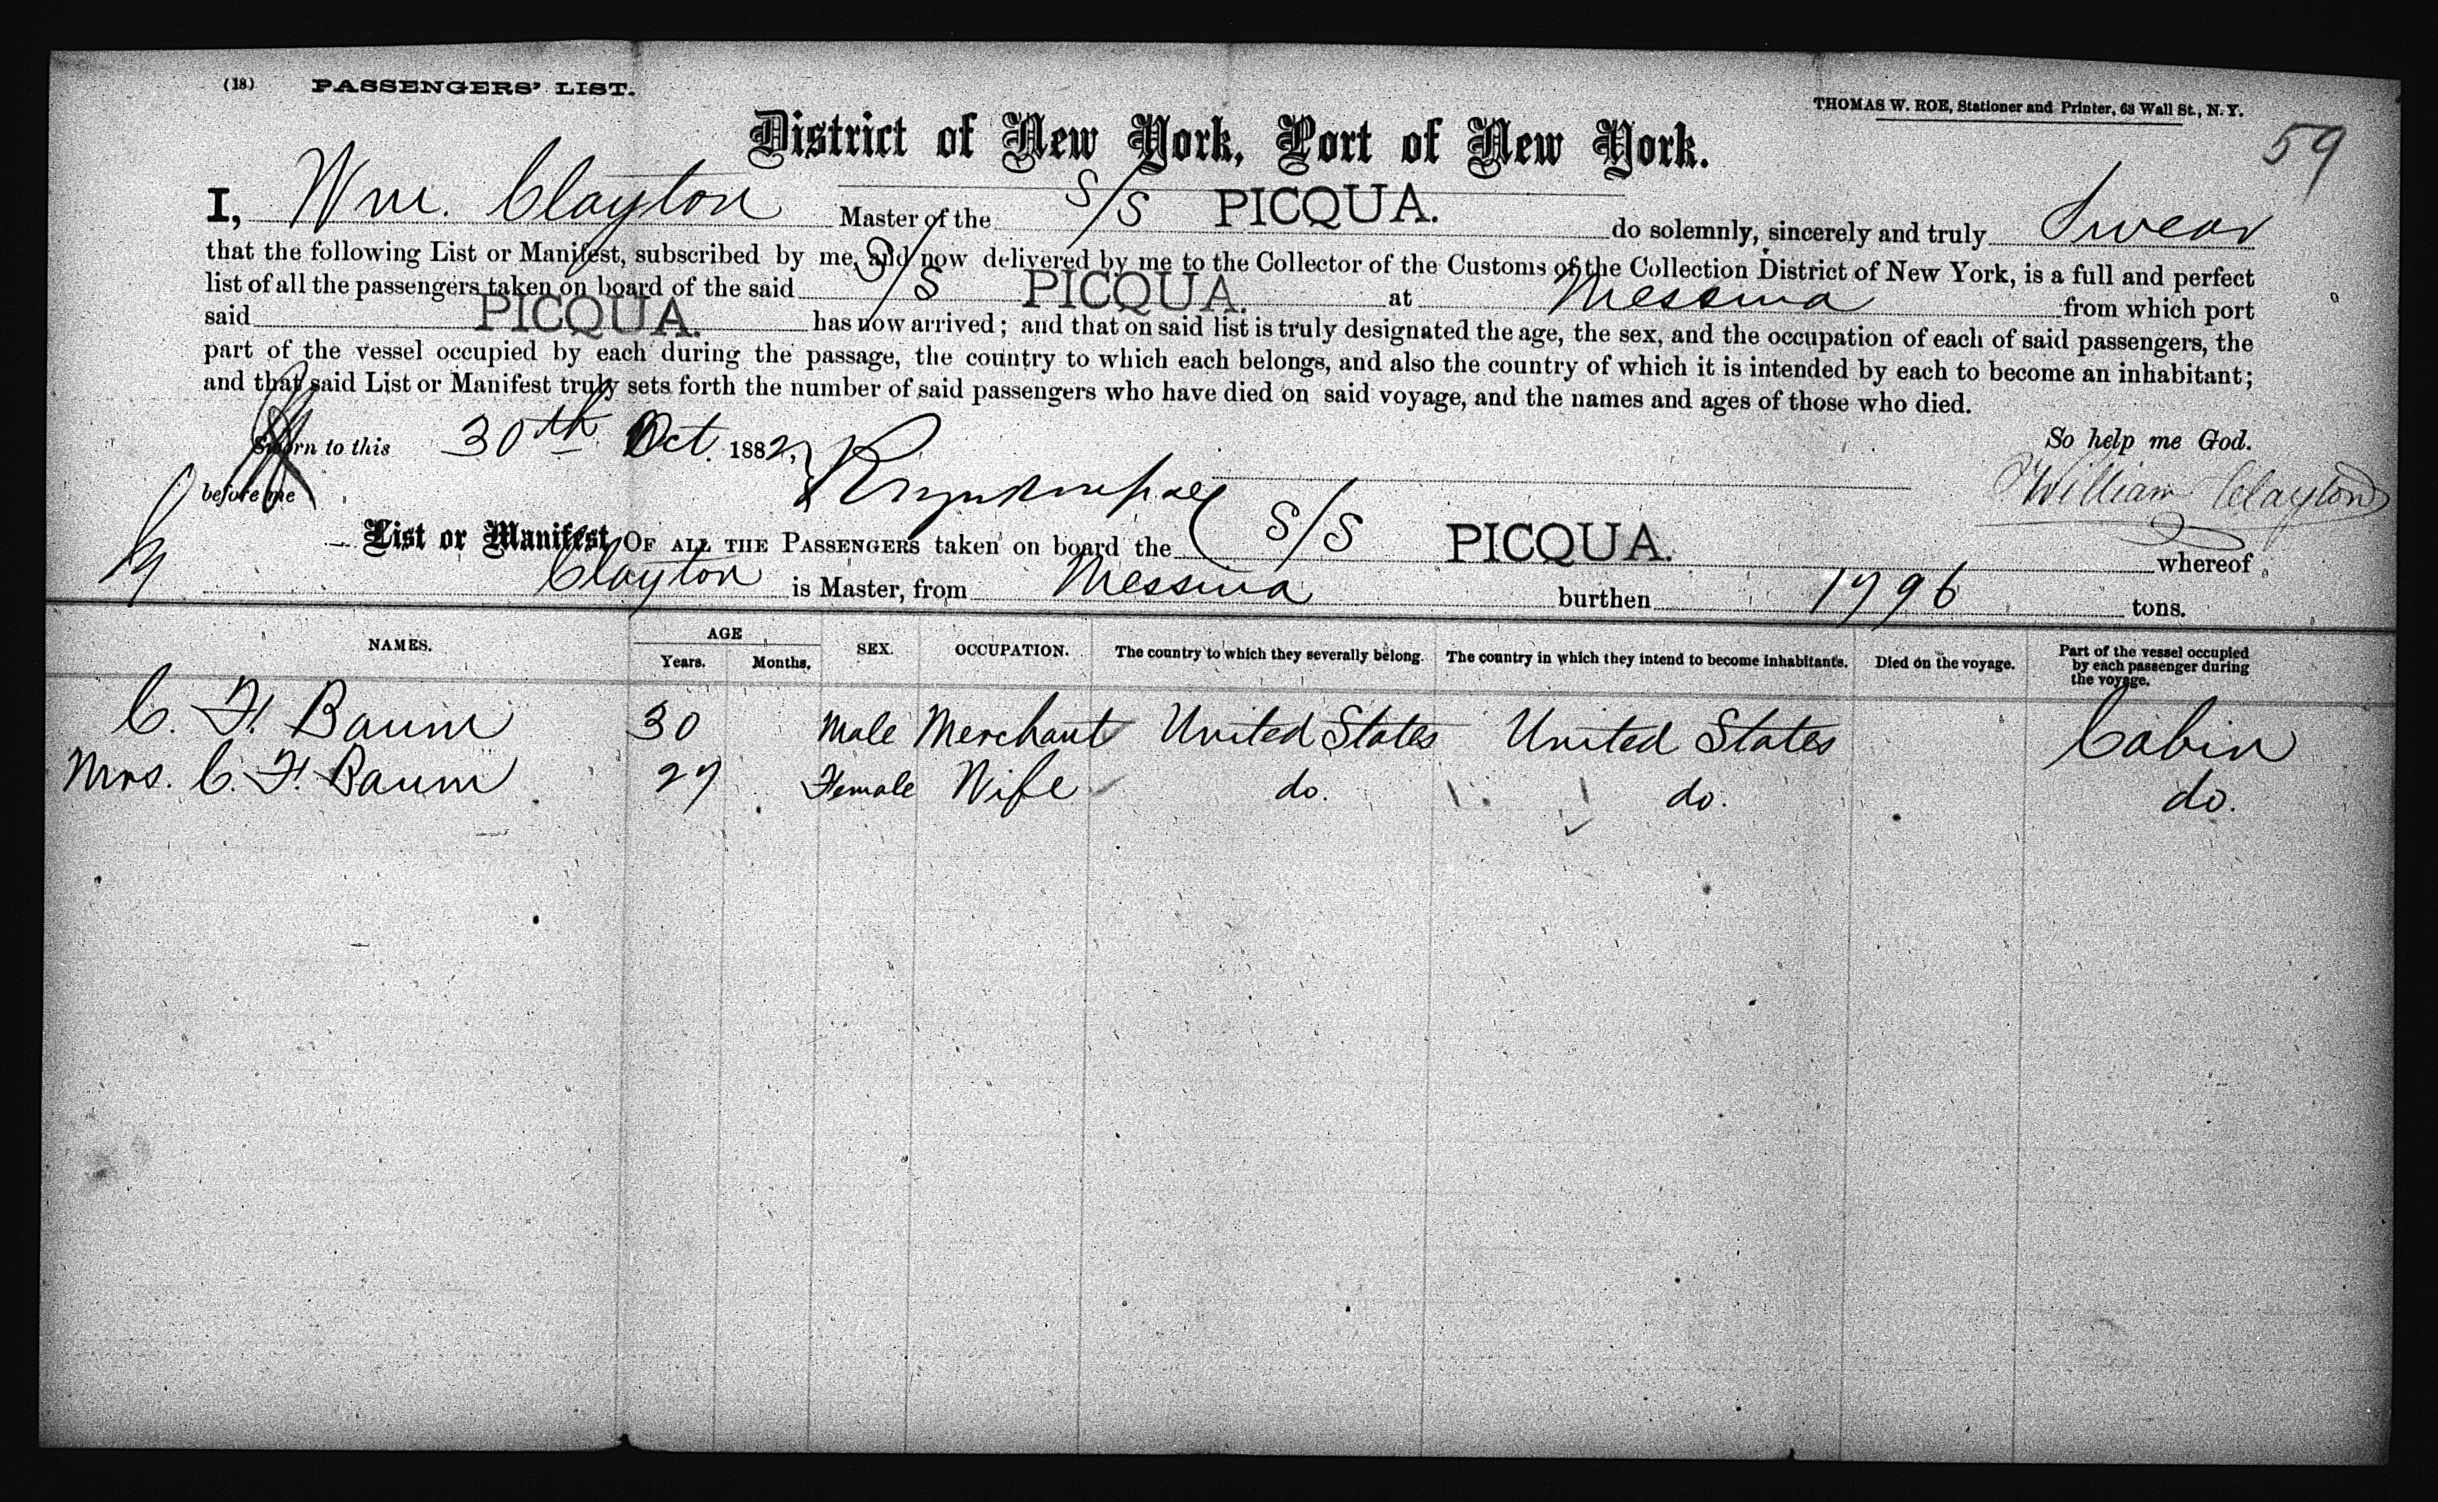 (18) PASSENGERS' LIST.
THOMAS W. ROE, Stationer and Printer, 63 Wall St., N. Y.
59
District of New York, Port of New York.
I, Wm. Clayton Master of the S/S PICQUA. do solemnly, sincerely and truly Swear
that the following List or Manifest, subscribed by me, and now delivered by me to the Collector of the Customs of the Collection District of New York, is a full and perfect
list of all the passengers taken on board of the said S/S PICQUA. at Messina from which port
said PICQUA. has now arrived; and that on said list is truly designated the age, the sex, and the occupation of each of said passengers, the
part of the vessel occupied by each during the passage, the country to which each belongs, and also the country of which it is intended by each to become an inhabitant;
and that said List or Manifest truly sets forth the number of said passengers who have died on said voyage, and the names and ages of those who died.
Sworn to this 30th Oct. 1882,
So help me God.
before me
William Clayton
List or Manifest OF ALL THE PASSENGERS taken on board the S/S PICQUA. whereof
Clayton is Master, from Messina burthen 1796 tons.
NAMES. AGE Years. Months. SEX. OCCUPATION. The country to which they severally belong. The country in which they intend to become inhabitants. Died on the voyage. Part of the vessel occupied by each passenger during the voyage.
C. F. Baum 30 Male Merchant United States United States Cabin
Mrs. C. F. Baum 27 Female Wife do. do. do.